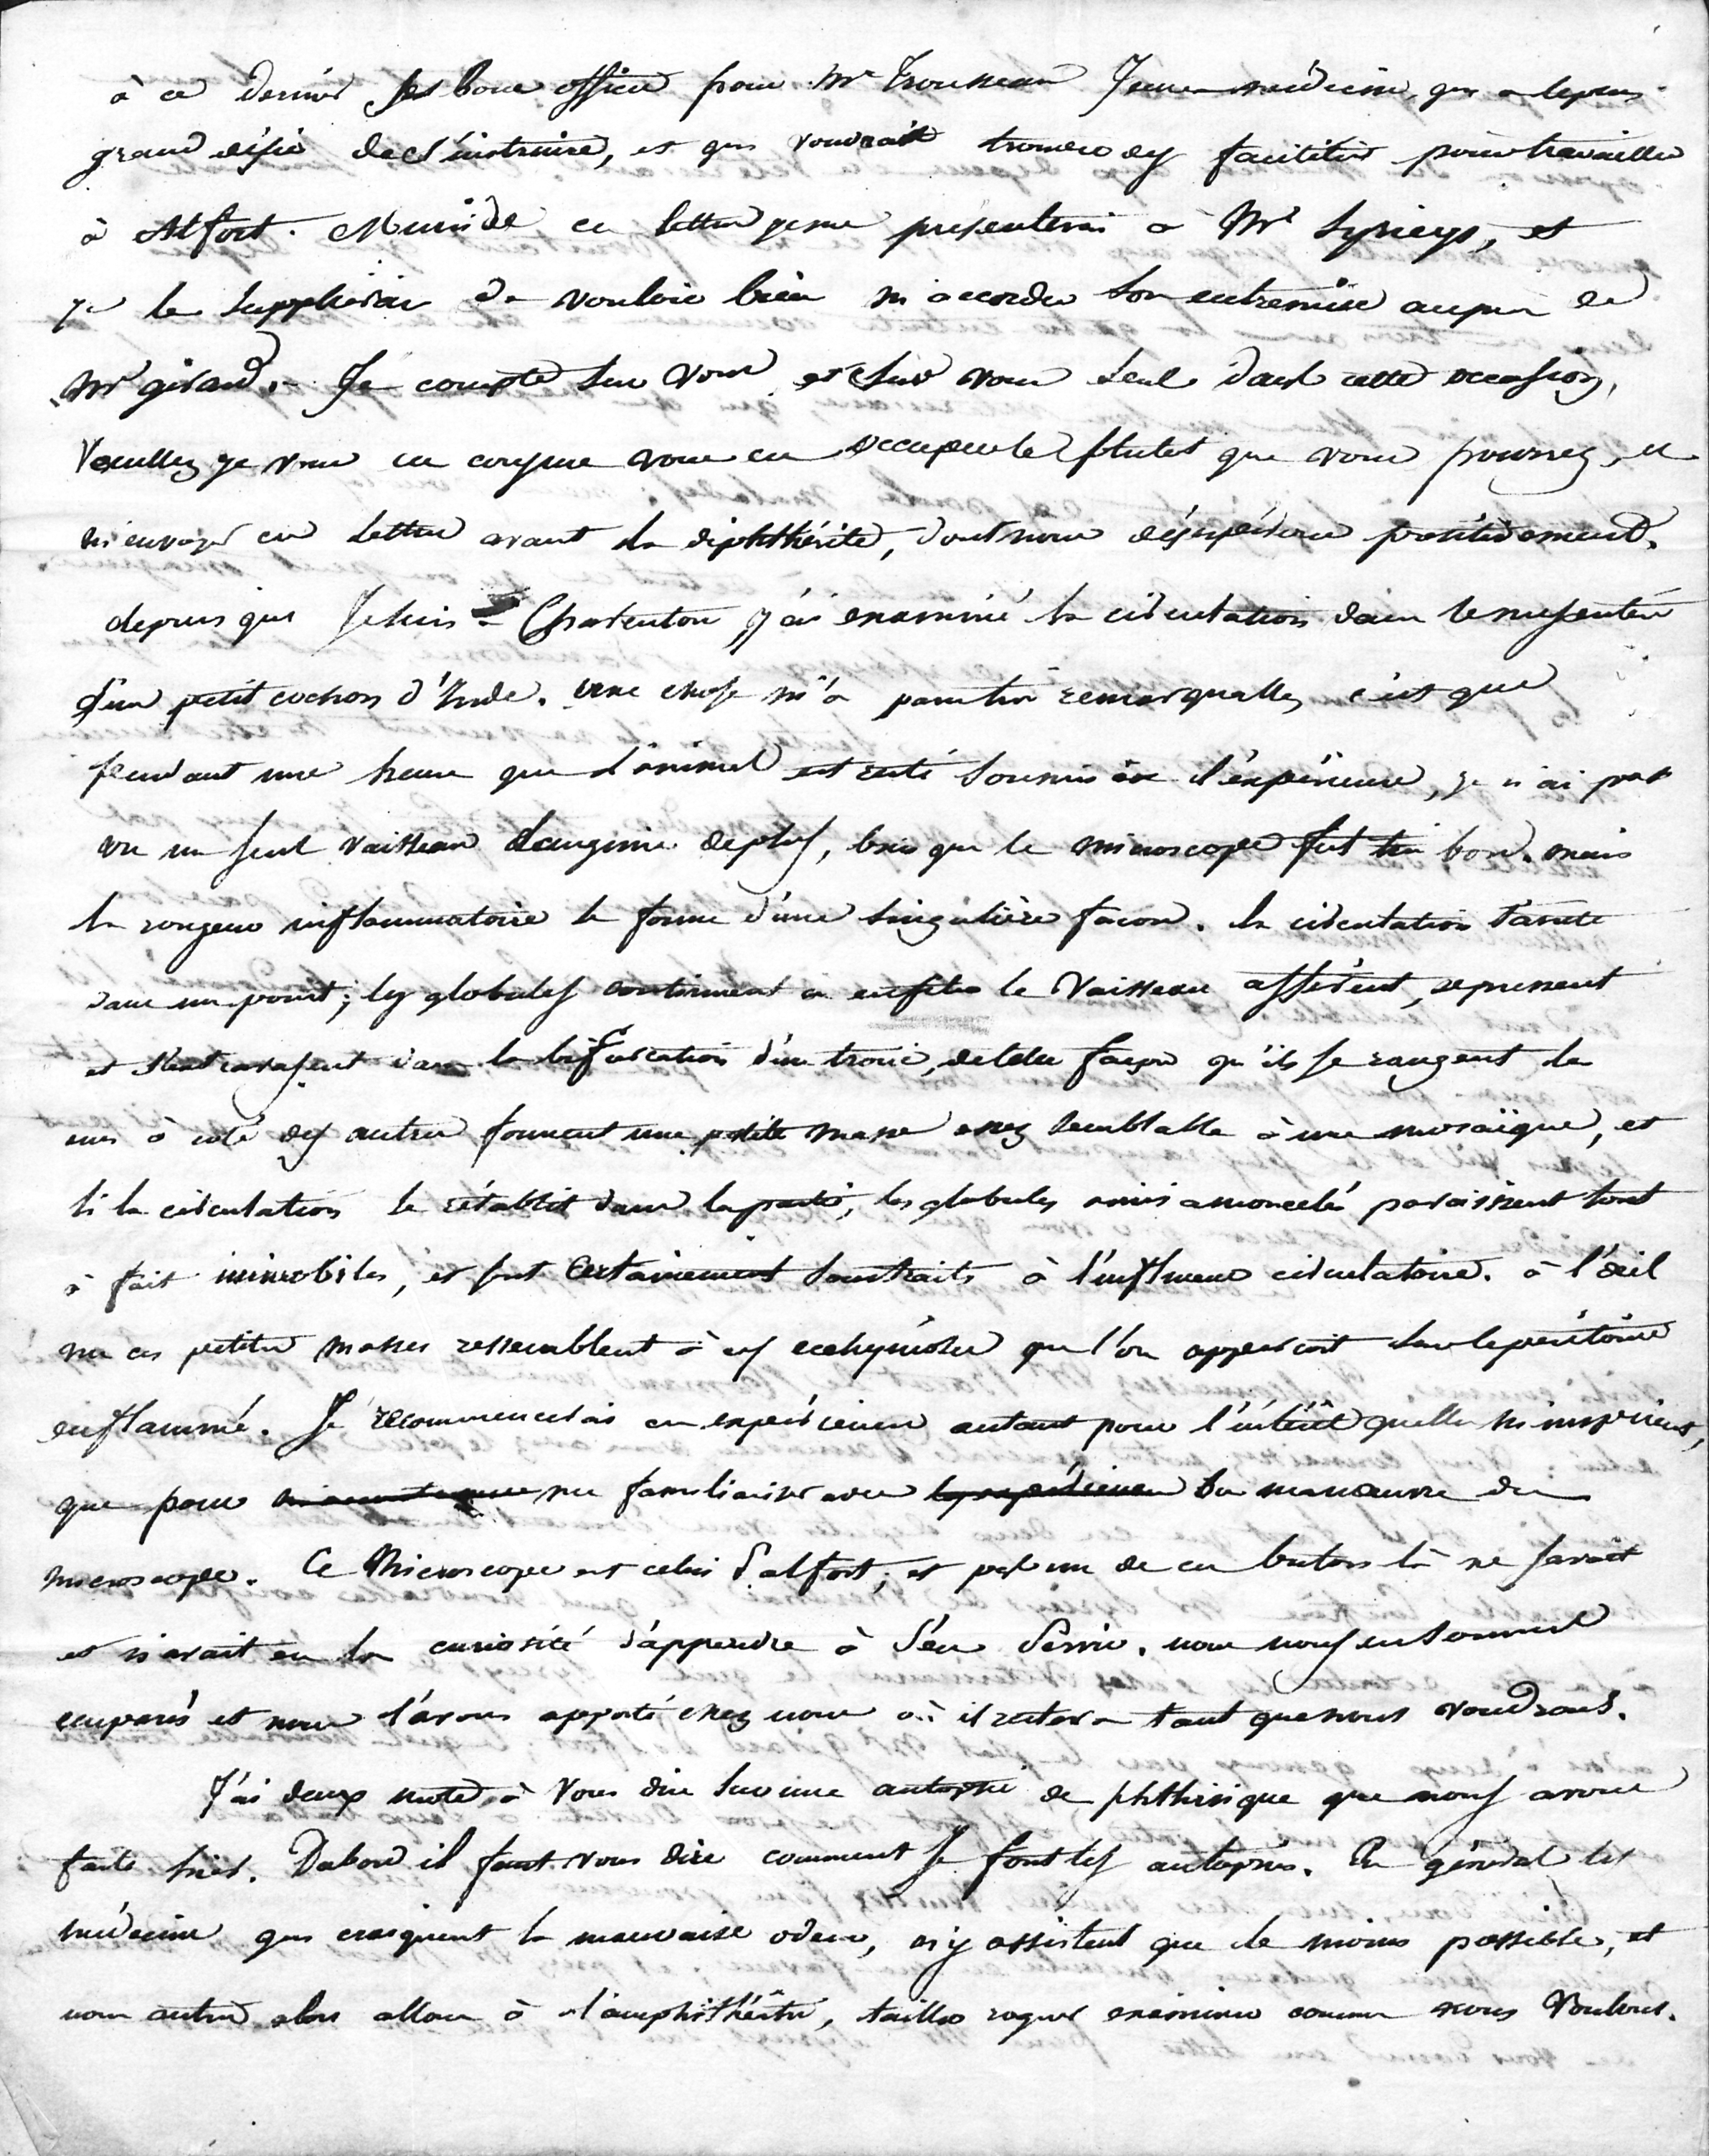 à ce dernier ses bons offices pour Mr Trousseau Jeune médecin, qui a le plus
grand désir de s'instruire, et qui voudrait trouver des facilités pour travailler
à Alfort. Muni de ces lettres je me présenterai à Mr Syrieys, et
je le supplierai de vouloir bien m'accorder son entremise auprès de
Mr girard. Je compte sur vous et sur vous seul dans cette occasion,
Veuillez je vous en conjure vous en occuper le plutot que vous pourrez, et
m'envoyer ces lettres avant la diphthérite, dont nous désespérons
depuis que Je suis à Charenton j'ai examiné la circulation dans le mésentère
d'un petit cochon d'Inde. Une chose m'a paru très remarquable, c'est que
pendant une heure que l'animal est resté soumis à l'expérience, je n'ai pas
vu un seul vaisseau sanguin de plus, bien que le microscope fut très bon. mais
la rougeur inflammatoire se forme d'une singulière façon. la circulation s'arrete
dans un point; les globules continuent à enfiler le Vaisseau afférent, se pressent
et s'extravasent dans la bifurcation d'un tronc, de telle façon qu'ils se rangent les
uns à coté des autres forment une petite masse assez semblable à une mosaïque, et
si la circulation se rétablit dans la partie, les globules ainsi amoncelés paraissent tout
à fait immobiles, et sont Certainement soustraits à l'influence circulatoire. à l'œil
nu ces petites masses ressemblent à ces ecchymoses que l'on apperçoit sur le péritoine
enflammé. Je recommencerai ces expériences autant pour l'intérêt quelles m'inspirent,
que pour me familiariser avec les expériences la manœuvre du
microscope. Ce Microscope est celui d'alfort; et pas un de ces butors là ne savait
et n'avait eu la curiosité d'apprendre à s'en servir. nous nous en sommes
emparés et nous l'avons apporté chez nous où il restera tant que nous voudrons.
J'ai deux mots à vous dire sur une autopsie de phthisique que nous avons
faite hier. Dabord il faut vous dire comment se font les autopsies. En général les
médecins qui craignent la mauvaise odeur, n'y assistent que le moins possible, et
nous autres alors allons à l'amphithéâtre, tailler rogner examiner comme nous Voulons.